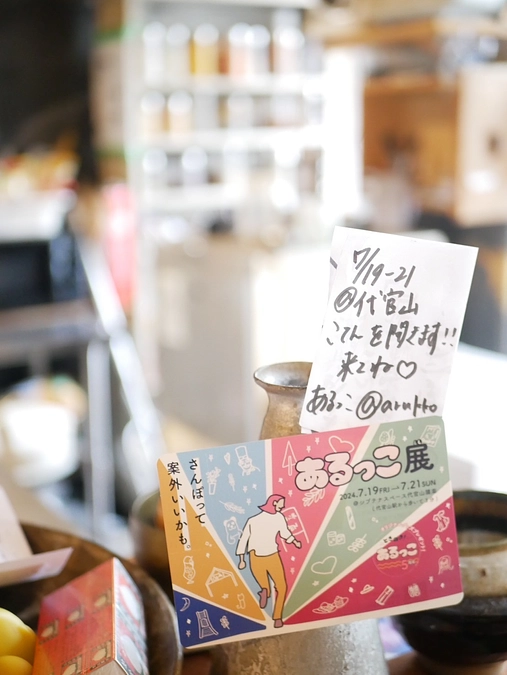 7/19-21
@代官山
こてんを開きます!!
来てね♡
あるっこ@arukko
さんぽって
案外いいかも。
あるっこ展
2024.7.19FRI→7.21SUN
あるっこ